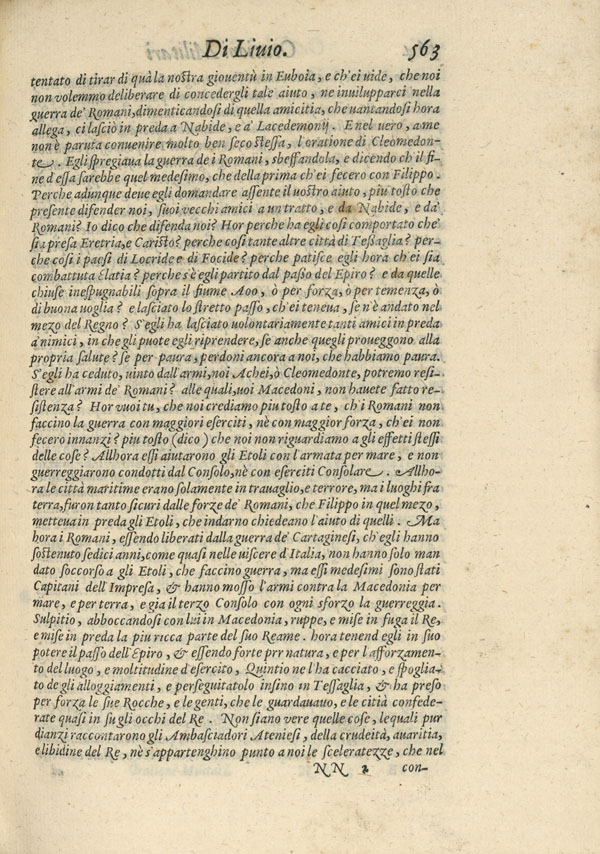 Di Liuio. 563
tentato di tirar di quà la nostra giouentù in Euboia, e ch'ei uide, che noi
non volemmo deliberare di concedergli tale aiuto, ne inuilupparci nella
guerra de' Romani, dimenticandosi di quella amicitia, che uantandosi hora
allega, ci lasciò in preda a Nabide, e a' Lacedemonij. E nel uero, a me
non è paruta conuenire molto ben seco stessa, l'oratione di Cleomedon-
te. Egli spregiaua la guerra de i Romani, sbeffandola, e dicendo ch'il fi-
ne d'essa sarebbe quel medesimo, che della prima ch'ei fecero con Filippo.
Perche adunque deue egli domandare assente il uostro aiuto, piu tosto che
presente difender noi, suoi vecchi amici a un tratto, e da Nabide, e da'
Romani? Io dico che difenda noi? Hor perche ha egli cosi comportato che'
sia presa Eretria, e Caristo? perche cosi tante altre città di Tessaglia? per-
che cosi i paesi di Locride e di Focide? perche patisce egli hora ch'ei sia
combattuta Elatia? perche s'è egli partito dal passo del Epiro? e da quelle
chiuse inespugnabili sopra il fiume Aoo, ò per forza, ò per temenza, ò
di buona uoglia? e lasciato lo stretto passo, ch'ei teneua, se n'è andato nel
mezo del Regno? S'egli ha lasciato uolontariamente tanti amici in preda
a' nimici, in che gli puote egli riprendere, se anche quegli proueggono alla
propria salute? se per paura, perdoni ancora a noi, che habbiamo paura.
S'egli ha ceduto, uinto dall'armi, noi Achei, ò Cleomedonte, potremo resi-
stere all'armi de' Romani? alle quali, uoi Macedoni, non hauete fatto re-
sistenza? Hor vuoi tu, che noi crediamo piu tosto a te, ch'i Romani non
faccino la guerra con maggiori eserciti, nè con maggior forza, ch'ei non
fecero innanzi? piu tosto (dico) che noi non riguardiamo a gli effetti stessi
delle cose? Allhora essi aiutarono gli Etoli con l'armata per mare, e non
guerreggiarono condotti dal Consolo, nè con eserciti Consolare. Allho-
ra le città maritime erano solamente in trauaglio, e terrore, ma i luoghi fra
terra, furon tanto sicuri dalle forze de' Romani, che Filippo in quel mezo,
metteua in preda gli Etoli, che indarno chiedeano l'aiuto di quelli. Ma
hora i Romani, essendo liberati dalla guerra de' Cartaginesi, ch'egli hanno
sostenuto sedici anni, come quasi nelle uiscere d'Italia, non hanno solo man
dato soccorso a gli Etoli, che faccino guerra, ma essi medesimi sono stati
Capitani dell'Impresa, & hanno mosso l'armi contra la Macedonia per
mare, e per terra, e gia il terzo Consolo con ogni sforzo la guerreggia.
Sulpitio, abboccandosi con lui in Macedonia, ruppe, e mise in fuga il Re,
e mise in preda la piu ricca parte del suo Reame. hora tenend egli in suo
potere il passo dell'Epiro, & essendo forte prr natura, e per l'afforzamen-
to del luogo, e moltitudine d'esercito, Quintio ne l'ha cacciato, e spoglia-
to degli alloggiamenti, e perseguitatolo insino in Tessaglia, & ha preso
per forza le sue Rocche, e le genti, che le guardauauo, e le città confede-
rate quasi in su gli occhi del Re. Non siano vere quelle cose, lequali pur
dianzi raccontarono gli Ambasciadori Ateniesi, della crudeità, auaritia,
e libidine del Re, nè s'appartenghino punto a noi le sceleratezze, che nel
NN 2 con-